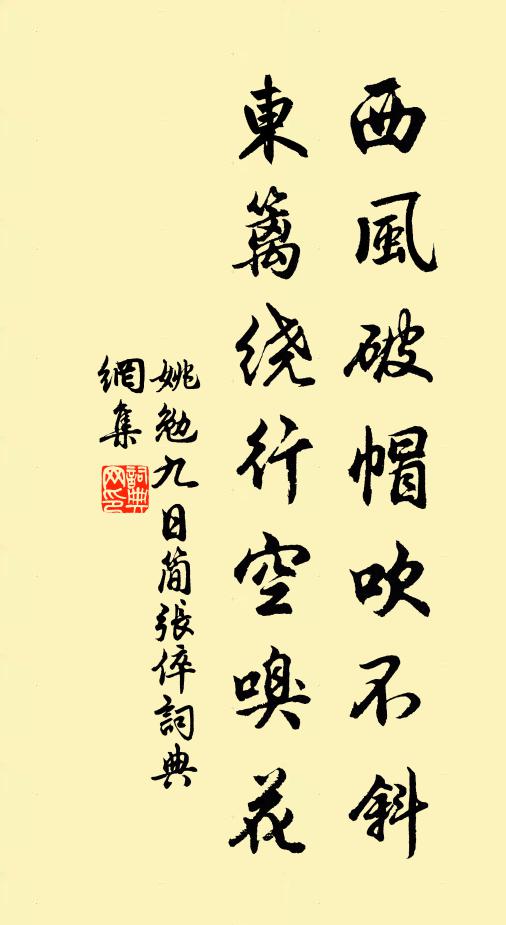 西風破帽吹不斜
東籬绕行空嗅花
姚勉九日簡張倅詞典
網集
詞典
网印